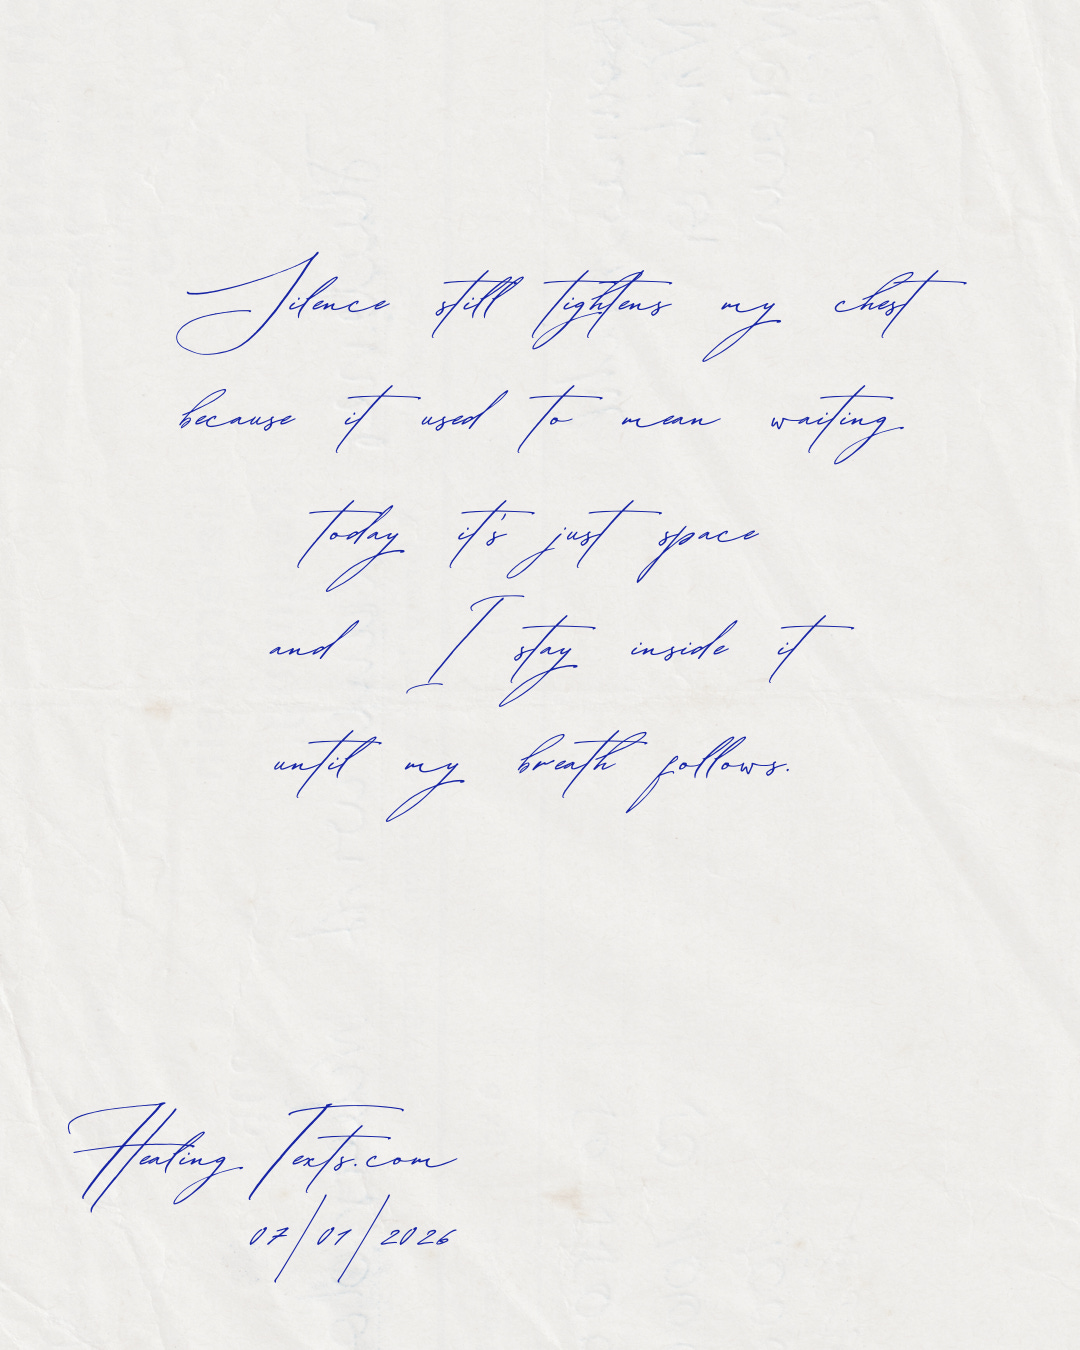 Silence still tightens my chest
because it used to mean waiting
today it's just space
and I stay inside it
until my breath follows.
Healing Texts.com
07/01/2026